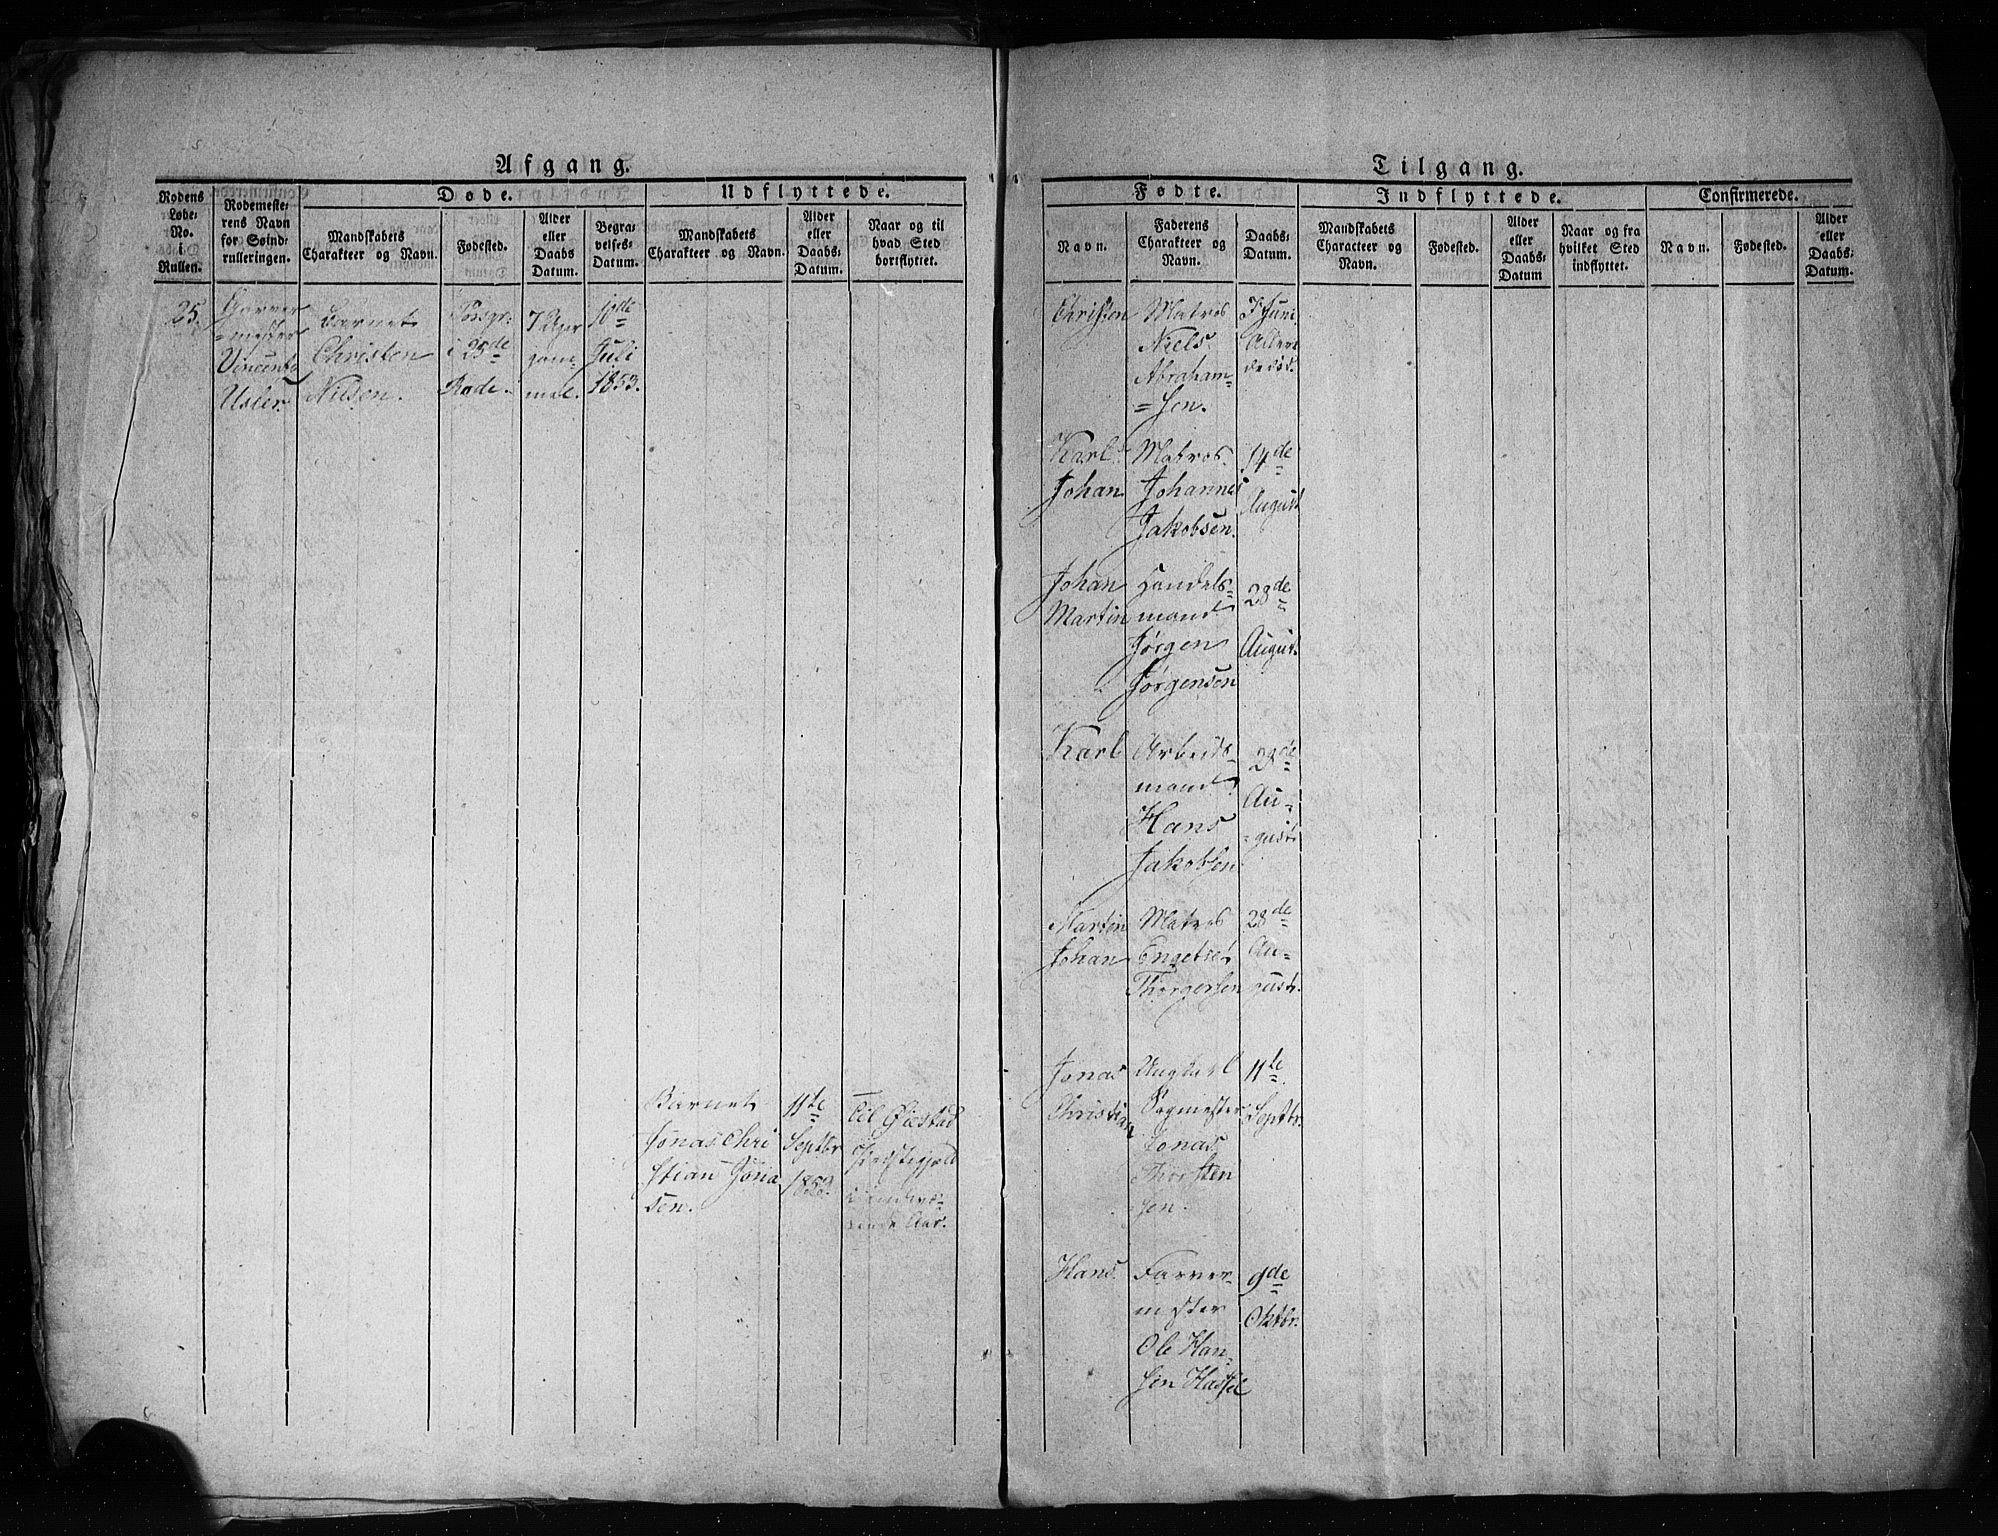 Afgang.
Rodens Løbe-No. i Rullen.
Rodemesterens Navn for Søindrulleringen.
Døde.
Mandskabets Charakteer og Navn.
Fødested.
Alder eller Daabs Datum.
Begravelses-Datum.
Udflyttede.
Mandskabets Charakteer og Navn.
Alder eller Daabs-Datum.
Naar og til hvad Sted bortflyttet.
25.
Garver
=mester
Vincents
Usler.
Barnet
Christen
Nilsen.
Porsgr:
i 25de
Rode.
7 Uger
gam-
mel.
10de
Juli
1853.
Barnet
Jonas Chri
stian Jona
sen.
11te
Septbr
1853.
Til
Præstegjeld
Aar.
Tilgang.
Fødte.
Navn.
Faderens Charakteer og Navn.
Daabs-Datum.
Indflyttede.
Mandskabets Characteer og Navn.
Fødested.
Alder eller Daabs-Datum
Naar og fra hvilket Sted indflyttet.
Confirmerede.
Navn.
Fødested.
Alder eller Daabs-Datum.
Christen
Matros
Niels
Abraham=
=sen.
Juni
Karl
Johan
Matros
Johannes
Jakobsen.
14de
August
Johan
Martin
Handels=
mand
Jørgen
Jørgensen
28de
August.
Karl
Arbeids
mand
Hans
Jakobsen
28de
Au=
=gust
Martin
Johan
Matros
Thorgersen
28de
Au=
gust.
Jonas
Christian
Sagmester
Jonas
Thorsten
sen.
11te
Septbr.
Hans.
Farver=
mester
Ole Han=
sen Hassel
9de
Oktbr.